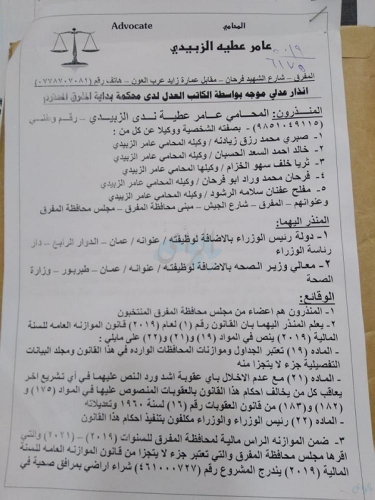 المحامي
Advocate
عامر عطيه الزبيدي
المفرق – شارع الشهيد فرحان – مقابل عمارة زايد عرب العون – هاتف رقم (٠٧٧٨٧٠٧٠٨١)
انذار عدلي موجه بواسطة الكاتب العدل لدى محكمة بداية
المنـــذرون: المحـامي عـامر عطيـة نـدى الزبيـدي – رقـم وطنـي
(٩٨٥١٠٤٩١١٥) - بصفته الشخصية ووكيلا عن كل من :
١- صبري محمد رزق زيادنه / وكيله المحامي عامر الزبيدي
٢- خالد احمد السعد الحسبان / وكيله المحامي عامر الزبيدي
٣- ثريا خلف سهو الخزام / وكيلها المحامي عامر الزبيدي
٤- فرحان محمد وراد ابو فرحان / وكيله المحامي عامر الزبيدي
٥- مفلح عفنان سلامه الرشود / وكيله المحامي عامر الزبيدي
وعنوانهم – المفرق – شارع الجيش – مبنى محافظة المفرق – مجلس محافظة المفرق
المنذر اليهما:
١- دولة رئيس الوزراء بالاضافة لوظيفته / عنوانه / عمان – الدوار الرابع – دار
رئاسة الوزراء
٢- معالي وزير الصحه بالاضافة لوظيفته / عنوانه / عمان – طبربور – وزارة
الصحة
الوقائع:
١- المنذرون هم اعضاء من مجلس محافظة المفرق المنتخبون
٢- يعلم المنذر اليهما بان القانون رقم (١) لعام (٢٠١٩) قانون الموازنه العامه للسنة
المالية (٢٠١٩) ينص في المواد (١٩) و(٢١) و(٢٢) على مايلي :
- الماده (١٩) تعتبر الجداول وموازنات المحافظات الوارده في هذا القانون ومجلد البيانات
التفصيلية جزء لا يتجزا منه
- الماده (٢١) مع عدم الاخلال باي عقوبة اشد ورد النص عليهما في أي تشريع اخر
يعاقب كل من يخالف احكام هذا القانون بالعقوبات المنصوص عليها في المواد (١٧٥) و
(١٨٢) و(١٨٣) من قانون العقوبات رقم (١٦) لسنة ١٩٦٠ وتعديلاته
- الماده (٢٢) رئيس الوزراء والوزراء مكلفون بتنفيذ احكام هذا القانون
٣- ضمن الموازنه الراس مالية لمحافظة المفرق للسنوات (٢٠١٩ – ٢٠٢١) والتي
اقرها مجلس محافظة المفرق والتي تعتبر جزء لا يتجزا من قانون الموازنه العامه للسنة
المالية (٢٠١٩) يندرج المشروع رقم (٤٦١٠٠٠٧٢٧) شراء اراضي بمرافق صحية في